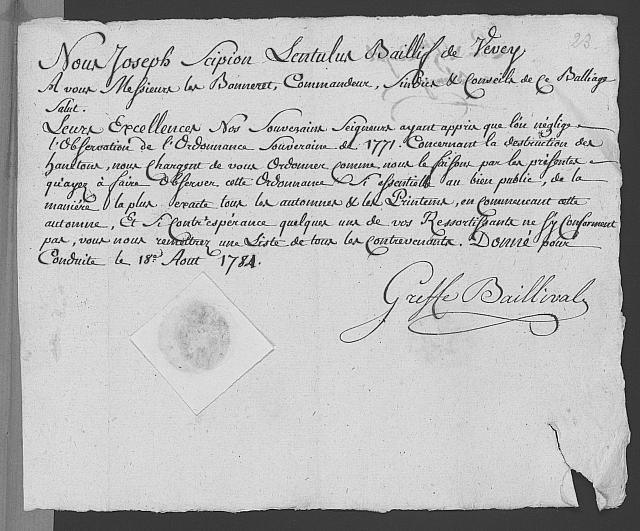 23.
Nous Joseph Scipion Lentulus Baillif de Vevey
A vous Messieurs les Banneret, Commandeur, Sindics & Conseils de Ce Balliage
Salut.
Leurs Excellences Nos Souverains Seigneurs ayant appris que l'on néglige
l'Observation de l'Ordonnance Souveraine de 1771. Concernant la destruction des
Hanetons, nous Chargent de vous Ordonner comme nous le faisons par les présentes
qu'ayez à faire Observer cette Ordonnance Si essentielle au bien public, de la
manière la plus exacte tous les automnes & les Printems, en commencant cette
automne, Et Si Contr'espérance quelques uns de vos Ressortissants ne s'y Conforment
pas, vous nous remettrez une Liste de tous les Contrevenants. Donné pour
Conduite le 18e. Aout 1784.
Greffe Baillival